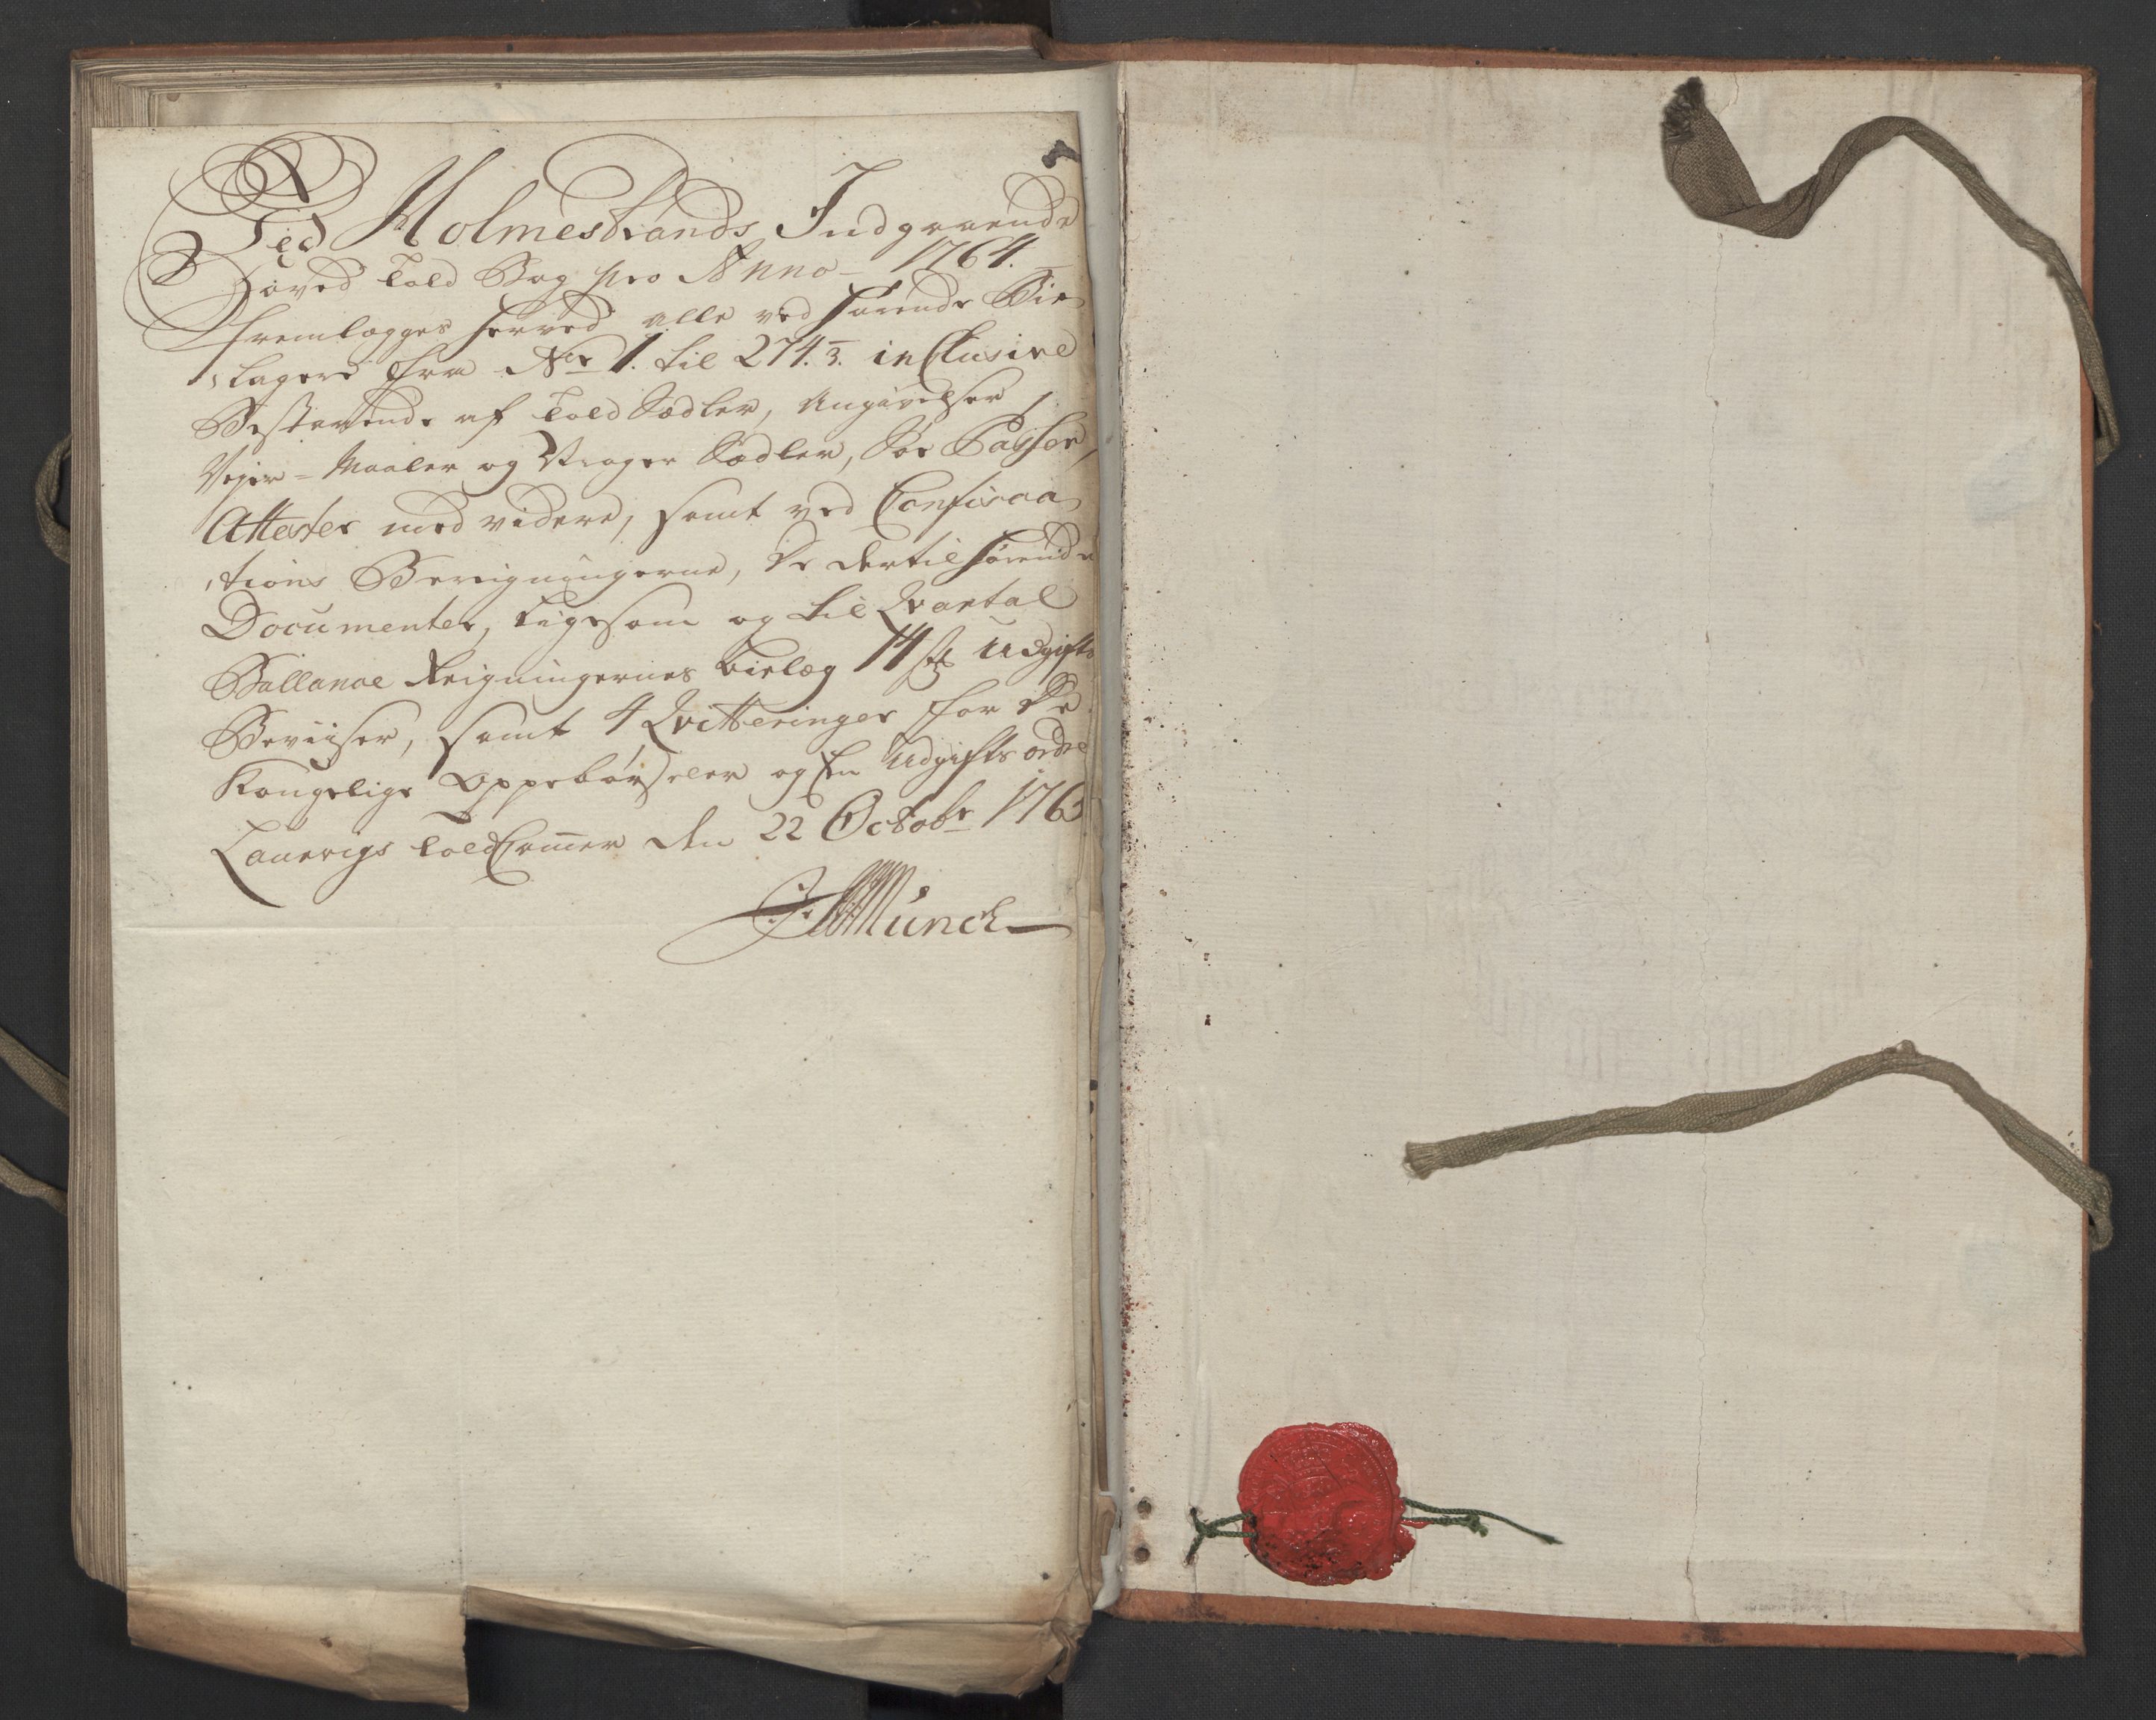 Ved Holmestrands Indgaaende
Hoved Told Bog pro Anno 1764.
fremlægges herved alle ved hørende Bie
lagere fra Nr 1. til 274.3. inclusive
Bestaaende af Told Sædler, Angivelser,
Vejer- Maaler og Vrager Sædler, Søe Passer,
Attester med videre, samt ved Confiscaa
tions Bereigningerne, de dertil hørende
Documenter, ligesom og til Qvartal
Ballance Reigningernes bielæg 14 st Udgifts
Beviiser, samt 4 Qvitteringer for de
Kongelige Oppebørseler og En Udgifts ordre
Laurvigs Told Cammer den 22 Octobr 176
Münch